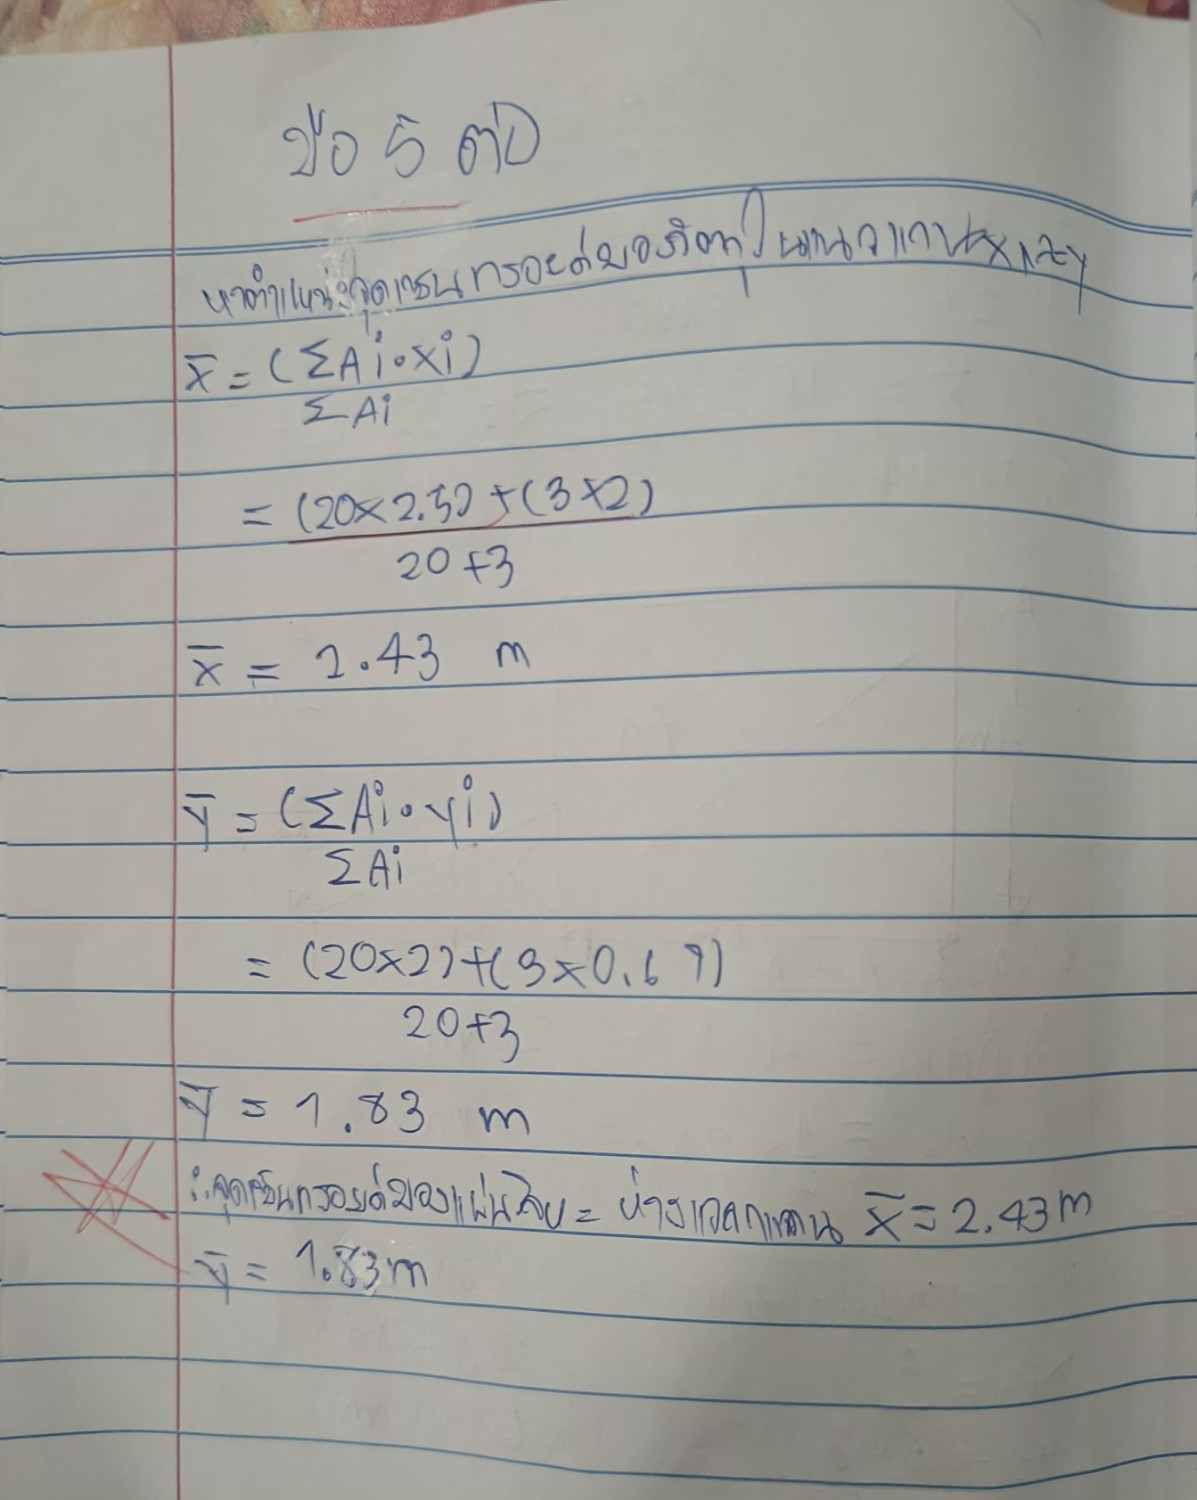 ข้อ 5 ต่อ
หาตำแหน่งจุดเซนทรอยด์ของวัตถุในแนวแกน x และ y
x̄ = (ΣAi·xi)
ΣAi
= (20×2.5)+(3×2)
20+3
x̄ = 2.43 m
ȳ = (ΣAi·yi)
ΣAi
= (20×2)+(3×0.67)
20+3
ȳ = 1.83 m
∴ จุดเซ็นทรอยด์ของแผ่น = ห่างจากแกน x̄ = 2.43 m
ȳ = 1.83 m